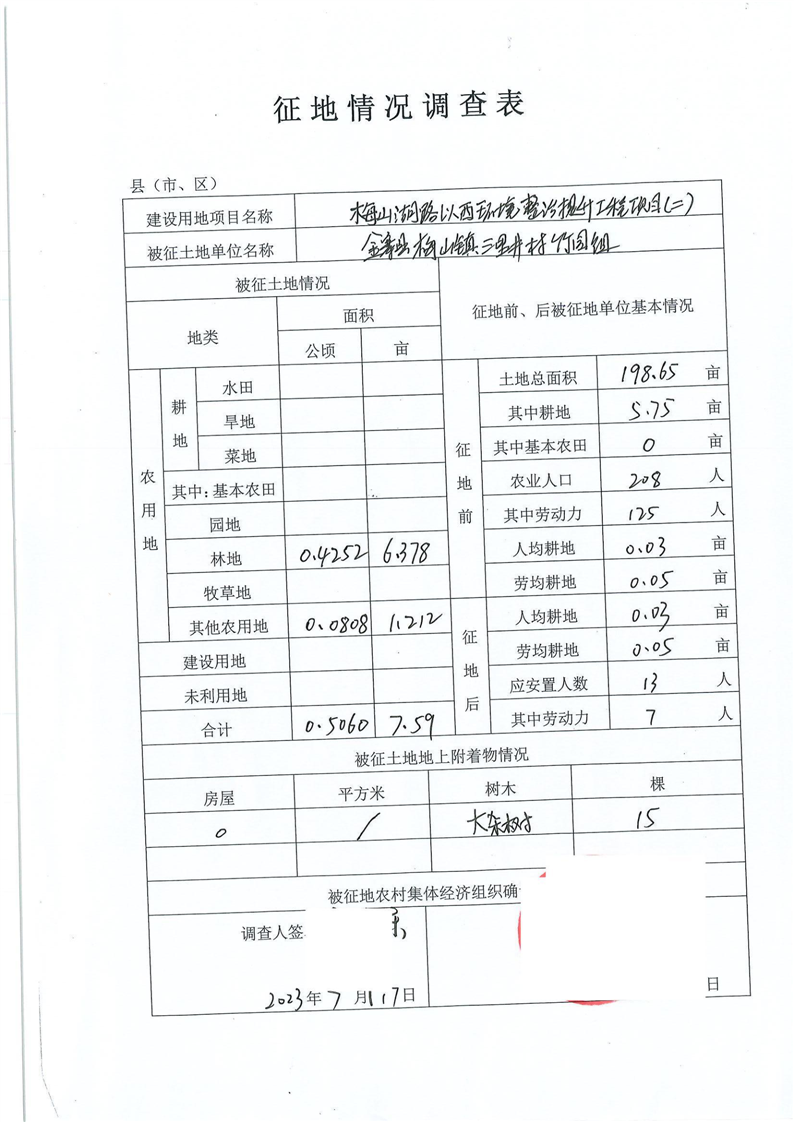 征地情况调查表
县（市、区）
建设用地项目名称 梅山湖路以西环境整治提升工程项目(二)
被征土地单位名称 金寨县梅山镇三里井村竹园组
被征土地情况 征地前、后被征地单位基本情况
地类 面积
公顷 亩
农用地 耕地 水田 征地前 土地总面积 198.65 亩
旱地 其中耕地 5.75 亩
菜地 其中基本农田 0 亩
其中:基本农田 农业人口 208 人
园地 其中劳动力 125 人
林地 0.4252 6.378 人均耕地 0.03 亩
牧草地 劳均耕地 0.05 亩
其他农用地 0.0808 1.212 征地后 人均耕地 0.03 亩
建设用地 劳均耕地 0.05 亩
未利用地 应安置人数 13 人
合计 0.5060 7.59 其中劳动力 7 人
被征土地地上附着物情况
房屋 平方米 树木 棵
0 / 大杂树 15
被征地农村集体经济组织确
调查人签
2023年7月17日 日